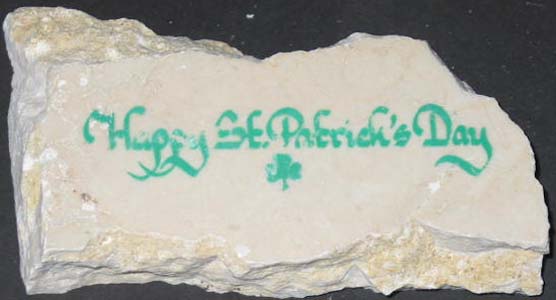 Happy St. Patrick's Day